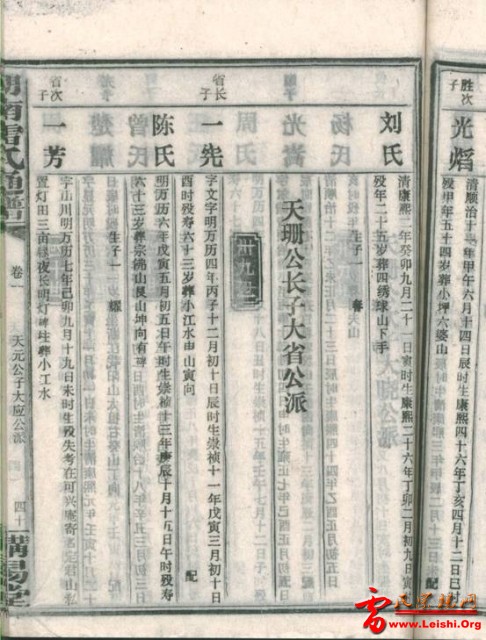 胜次子
光熖
清顺治十一年甲午六月十四日辰时生康熙四十六年丁亥四月十二日巳时
殁甲年五十四岁葬小坪六婆山
配
刘氏
清康熙二年癸卯九月二十一日寅时生康熙二十六年丁卯二月初九日寅时
殁年二十五岁葬四绣球山下手
生子一
天珊公长子大省公派
卅九世
省长子
一宪
字文字明万历四年丙子十二月初十日辰时生崇祯十一年戊寅三月初十日
酉时殁寿六十三岁葬小江水申山寅向
配
陈氏
明万历六年戊寅五月初五日午时生崇祯十三年庚辰十月十五日午时殁寿
六十三岁葬
山艮山坤向有碑
生子一
耀
省次子
一芳
字山川明万历七年己卯九月十九日未时生殁失考在可兴
寄
山坪
置灯田三亩昼夜长明灯
生葬小江水
湖南雷氏通谱
卷一
天元公子大应公派
四十
雷氏宗亲网
www.Leishi.Org